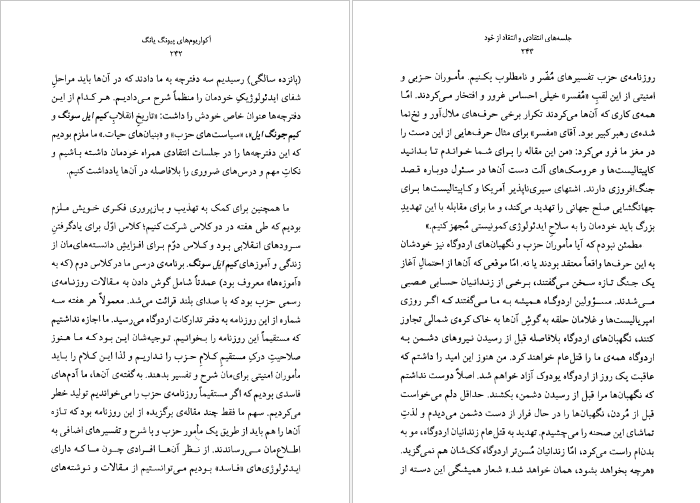 آکواریوم‌های پیونگ یانگ
۲۴۲
(پانزده سالگی) رسیدیم سه دفترچه به ما دادند که در آن‌ها باید مراحلِ
شفای ایدئولوژیکِ خودمان را منظماً شرح می‌دادیم. هر کدام از این
دفترچه‌ها عنوان خاص خودش را داشت: «تاریخ انقلابِ کیم ایل سونگ و
کیم جونگ ایل»، «سیاست‌های حزب» و «بنیان‌های حیات.» ما ملزم بودیم
که این دفترچه‌ها را در جلسات انتقادی همراه خودمان داشته باشیم و
نکاتِ مهم و درس‌های ضروری را بلافاصله در آن‌ها یادداشت کنیم.
ما همچنین برای کمک به تهذیب و بازپروری فکری خویش ملزم
بودیم که طی هفته در دو کلاس شرکت کنیم؛ کلاس اوّل برای یادگرفتنِ
سرودهای انقلابی بود و کلاس دوّم برای افزایشِ دانسته‌های‌مان از
زندگی و آموزهای کیم ایل سونگ. برنامه‌ی درسی ما در کلاس دوم (که به
«آموزه‌ها» معروف بود) عمدتاً شامل گوش دادن به مقالات روزنامه‌ی
رسمی حزب بود که با صدای بلند قرائت می‌شد. معمولاً هر هفته سه
شماره از این روزنامه به دفتر تدارکات اردوگاه می‌رسید. ما اجازه نداشتیم
که مستقیماً این روزنامه را بخوانیم. توجیه‌شان این بود که ما هنوز
صلاحیتِ درکِ مستقیمِ کلامِ حزب را نداریم و لذا این کلام را باید
مأموران امنیتی برای‌مان شرح و تفسیر بدهند. به گفته‌ی آن‌ها، ما آدم‌های
فاسدی بودیم که اگر مستقیماً روزنامه‌ی حزب را می‌خواندیم تولید خطر
می‌کردیم. سهم ما فقط چند مقاله‌ی برگزیده از این روزنامه بود که تازه
آن‌ها را هم باید از طریق یک مأمور حزب و با شرح و تفسیرهای اضافی به
اطلاع‌مان می‌رساندند. از نظر آن‌ها افرادی چون ما که دارای
ایدئولوژی‌های «فاسد» بودیم می‌توانستیم از مقالات و نوشته‌های
جلسه‌های انتقادی و انتقاد از خود
۲۴۳
روزنامه‌ی حزب تفسیرهای مُضّر و نامطلوب بکنیم. مأموران حزبی و
امنیتی از این لقبِ «مُفسر» خیلی احساس غرور و افتخار می‌کردند. امّا
همه‌ی کاری که آن‌ها می‌کردند تکرار برخی حرف‌های ملال‌آور و نخ‌نما
شده‌ی رهبر کبیر بود. آقای «مفسر» برای مثال حرف‌هایی از این دست را
در مغز ما فرو می‌کرد: «من این مقاله را برای شما خواندم تا بدانید
کاپیتالیست‌ها و عروسک‌های آلت دست آن‌ها در سئول دوباره قصد
جنگ‌افروزی دارند. اشتهای سیری‌ناپذیر آمریکا و کاپیتالیست‌ها برای
جهانگشایی صلح جهانی را تهدید می‌کند، و ما برای مقابله با این تهدیدِ
بزرگ باید خودمان را به سلاحِ ایدئولوژی کمونیستی مُجهز کنیم.»
مطمئن نبودم که آیا مأموران حزب و نگهبان‌های اردوگاه نیز خودشان
به این حرف‌ها واقعاً معتقد بودند یا نه. امّا موقعی که آن‌ها از احتمالِ آغاز
یک جنگ تازه سخن می‌گفتند، برخی از زندانیان حسابی عصبی
می‌شدند. مسؤولین اردوگاه همیشه به ما می‌گفتند که اگر روزی
امپریالیست‌ها و غلامان حلقه به گوشِ آن‌ها به خاک کره‌ی شمالی تجاوز
کنند، نگهبان‌های اردوگاه بلافاصله قبل از رسیدن نیروهای دشمن به
اردوگاه همه‌ی ما را قتل‌عام خواهند کرد. من هنوز این امید را داشتم که
عاقبت یک روز از اردوگاه یودوک آزاد خواهم شد. اصلاً دوست نداشتم
که نگهبان‌ها مرا قبل از رسیدن دشمن، بکشند. حداقل دلم می‌خواست
قبل از مُردن، نگهبان‌ها را در حال فرار از دست دشمن می‌دیدم و لذتِ
تماشای این صحنه را می‌چشیدم. تهدید به قتل‌عام زندانیان اردوگاه، مو به
بدن‌ام راست می‌کرد، امّا زندانیان مُسن‌تر اردوگاه کک‌شان هم نمی‌گزید.
«هرچه بخواهد بشود، همان خواهد شد.» شعار همیشگی این دسته از